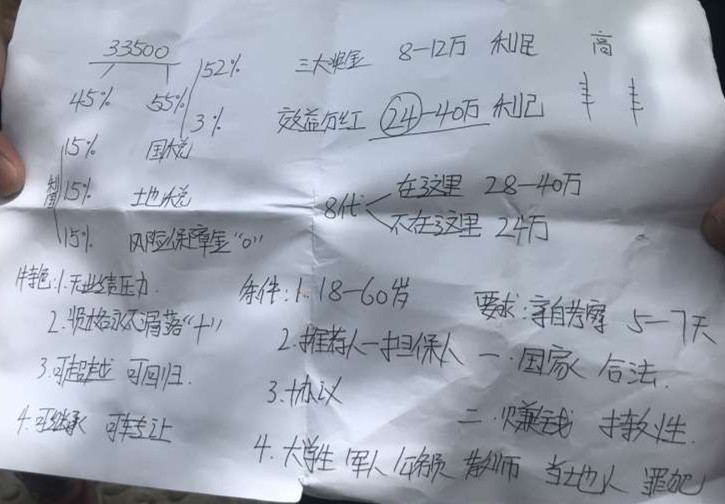 33500
45% 55% 52%
3%
15% 国税
利国 15% 土地税
15% 风险保障金“0”
特色:1.无业绩压力.
2.资格永不滑落“十”
3.可超越 可回归.
4.可继承 可转让
三大奖金 8—12万 利民 高
效益分红 24—40万 利己
8代 在这里 28—40万
不在这里 24万
条件:1.18—60岁
2.推荐人—担保人
3.协议
4.大学生 军人 公务员 教师 当地人 罪犯
要求:亲自考察 5—7天
一.国家 合法.
二.赚钱 持久性.